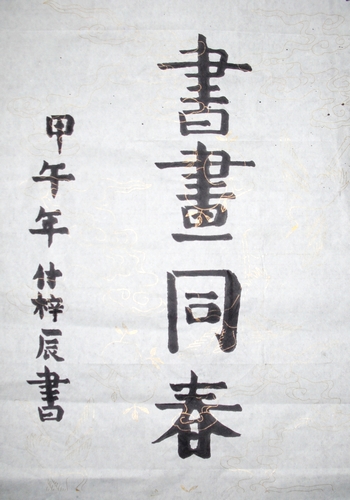 書畫同春
甲午年付梓辰書